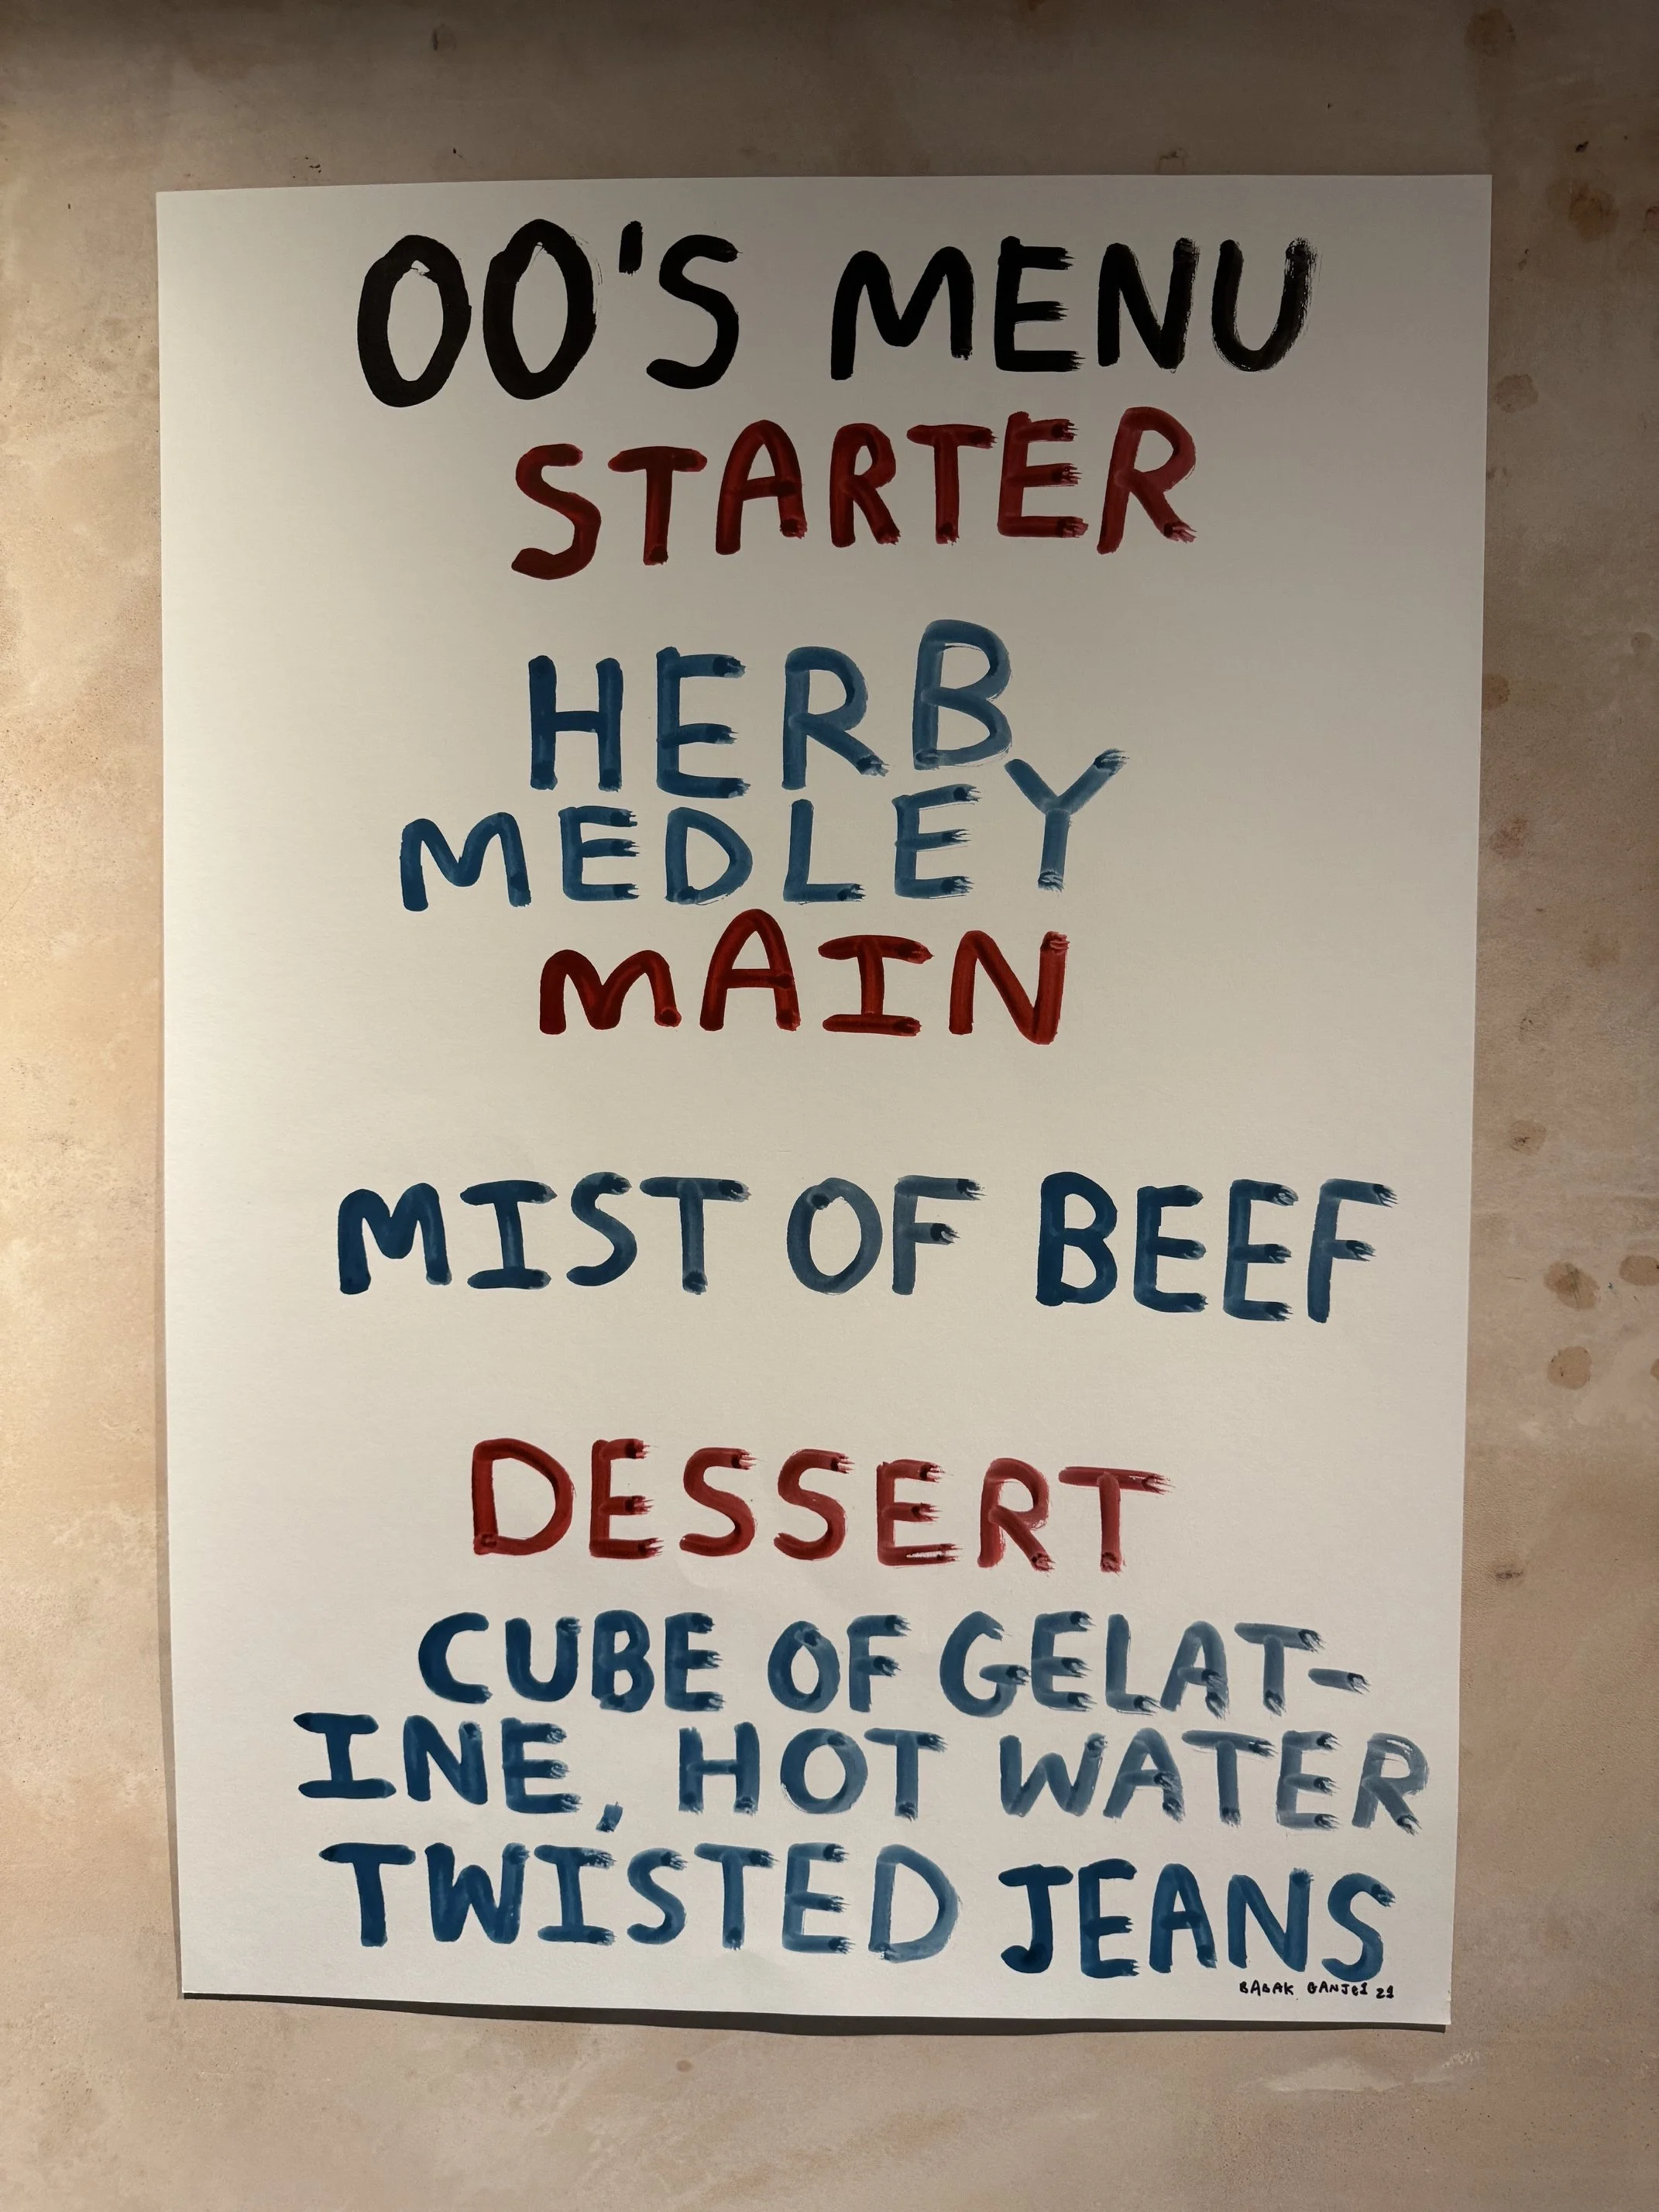 00'S MENU
STARTER
HERB
MEDLEY
MAIN
MIST OF BEEF
DESSERT
CUBE OF GELAT-
INE, HOT WATER
TWISTED JEANS
BABAK GANJEI 21